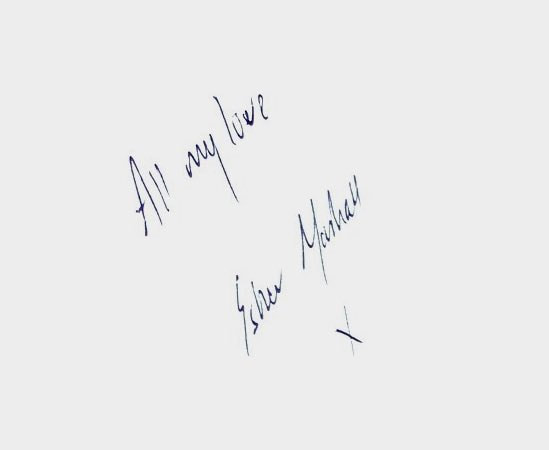 All my love
Esther Marshall
x